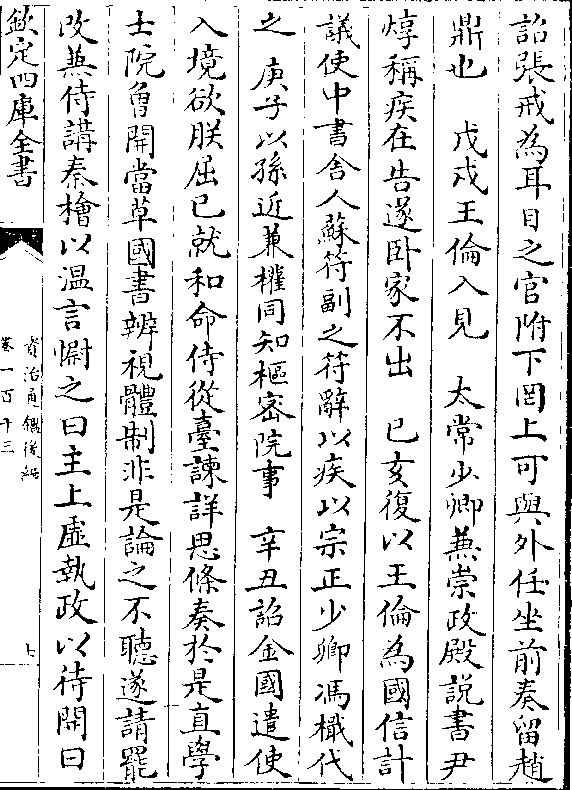 詔張戒為耳目之官附下罔上可與外任坐前奏留趙
鼎也　戊戌王倫入見　太常少卿兼崇政殿說書尹
焞稱疾在告遂卧家不出　已亥復以王倫為國信計
議使中書舍人蘇符副之符辭以疾以宗正少卿馮檝代
之　庚子以孫近兼權同知樞密院事　辛丑詔金國遣使
入境欲朕屈已就和命侍從臺諫詳思條奏於是直學
士院曾開當草國書辨視體制非是論之不聽遂請罷
改兼侍講秦檜以温言慰之曰主上虛執政以待開曰
欽定四庫全書
資治通鑑後編
卷一百十三
七